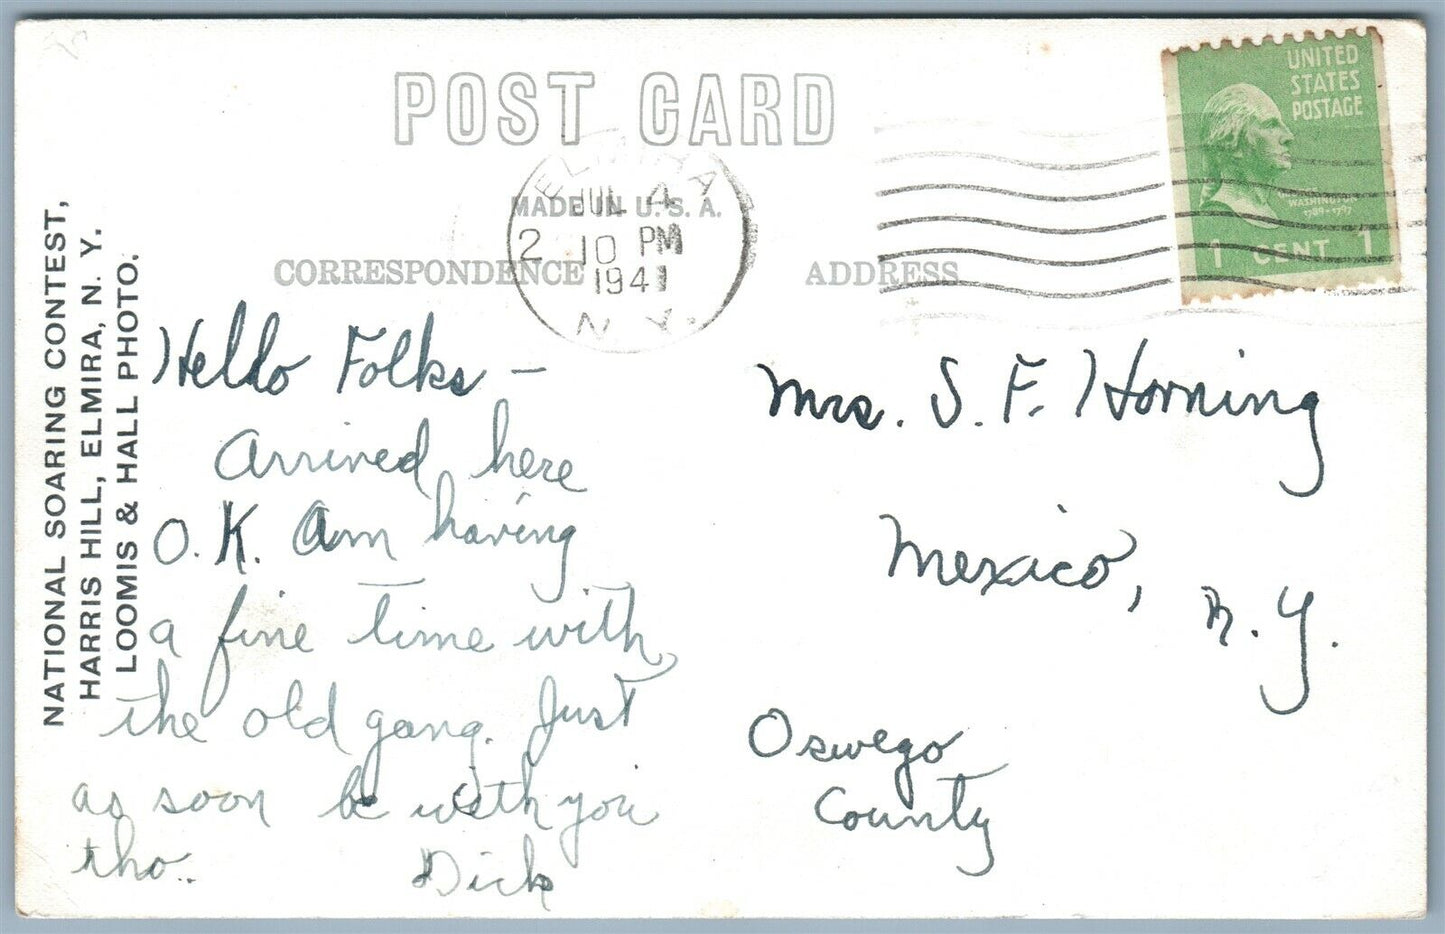 POST CARD
MADE IN U.S.A.
CORRESPONDENCE
ADDRESS
ELMIRA
JUL 4
2 10 PM
1941
N. Y.
UNITED
STATES
POSTAGE
WASHINGTON
1789-1797
1 CENT 1
NATIONAL SOARING CONTEST,
HARRIS HILL, ELMIRA, N. Y.
LOOMIS & HALL PHOTO.
Hello Folks –
Arrived here
O.K. Am having
a fine time with
the old gang. Just
as soon be with you
tho..
Dick
Mrs. S. F. Horning
Mexico, N.Y.
Oswego
County